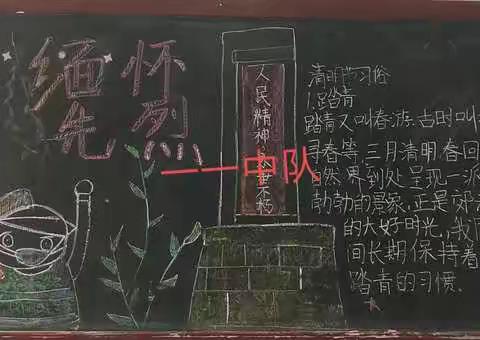 缅怀
先烈
人民精神永垂不朽
一一中队
清明节习俗
1.踏青
踏青又叫春游.古时叫
寻春等.三月清明,春回
自然界到处呈现一派
勃勃的景象,正是郊
的大好时光,我
间长期保持着
踏青的习惯.